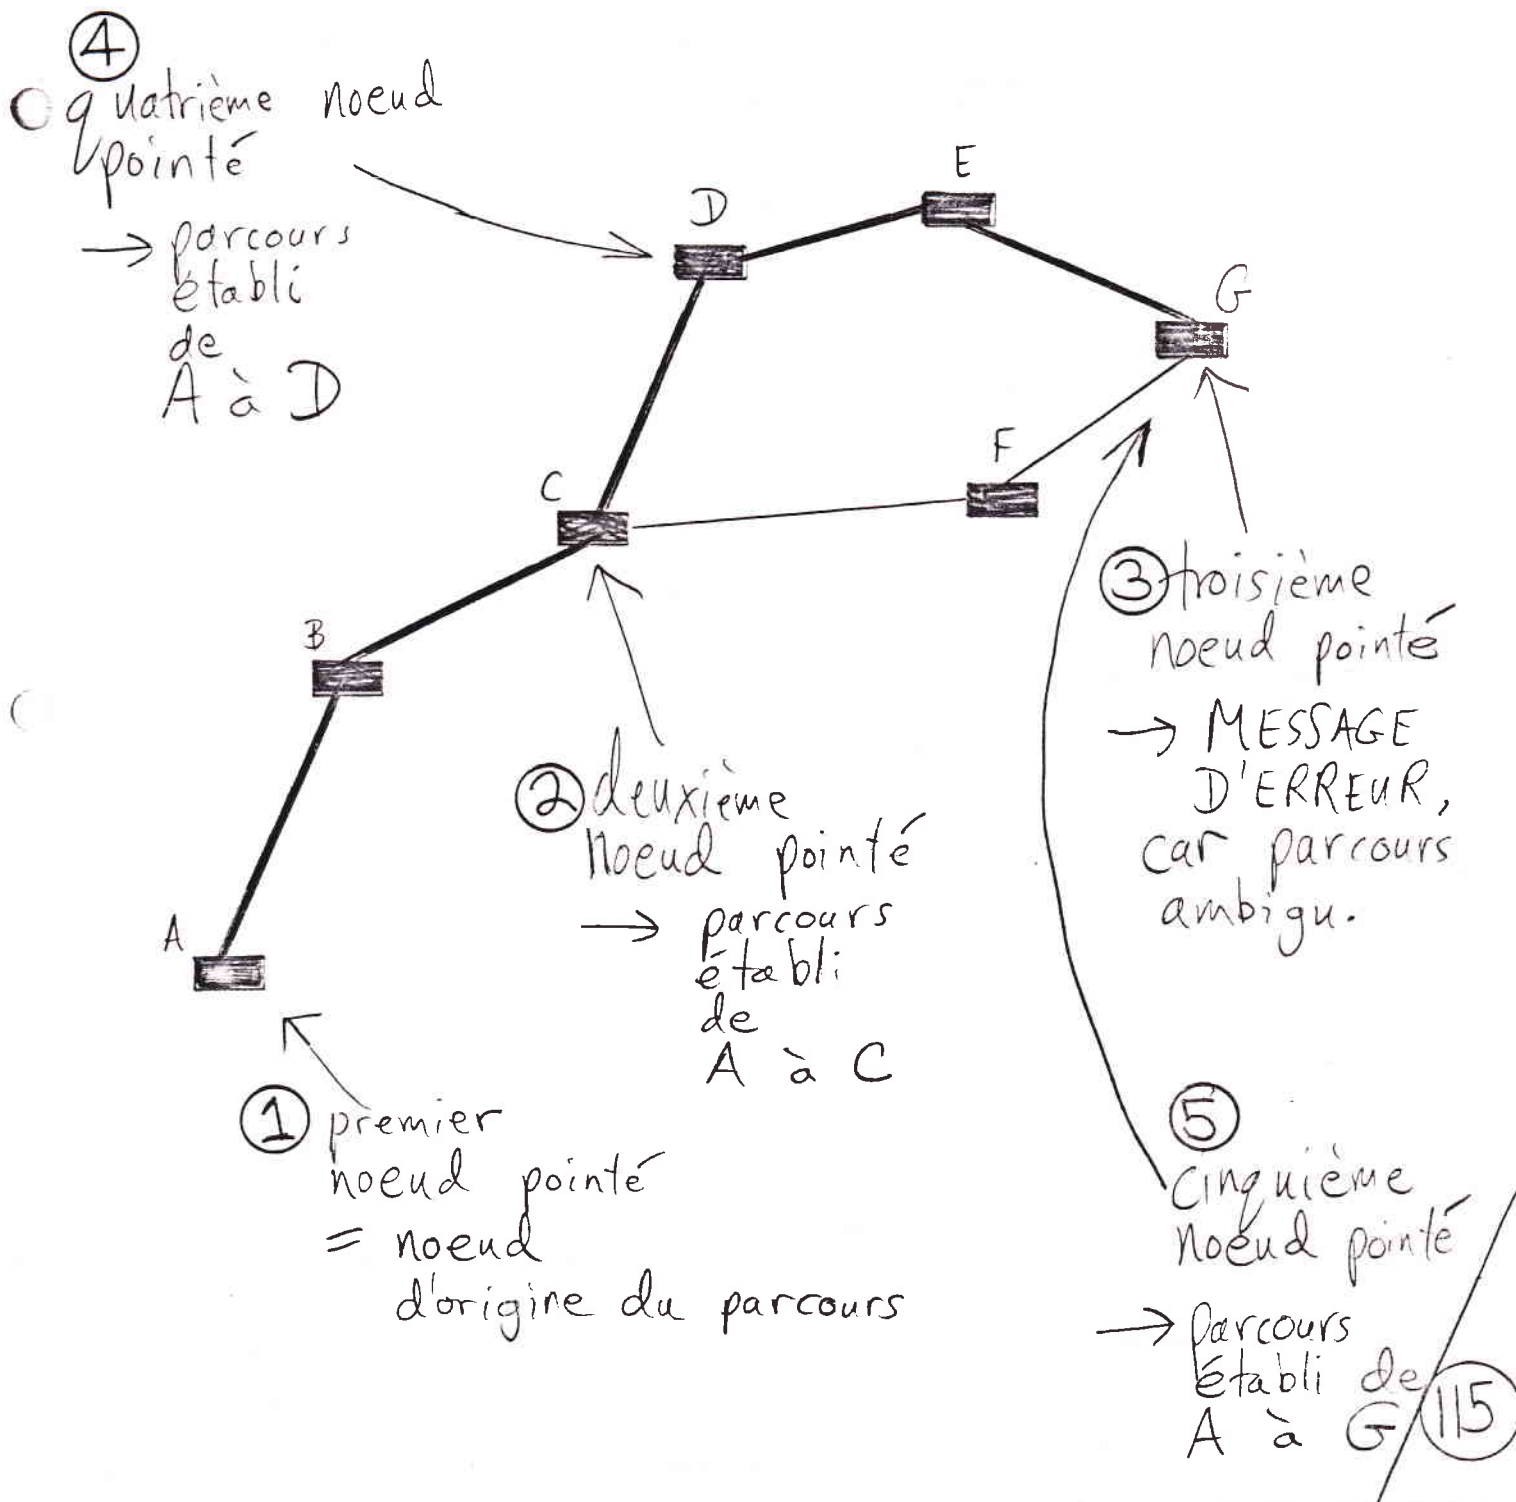 ④
quatrième noeud
pointé
→ parcours
établi
de
A à D
D
E
G
C
F
B
A
③ troisième
noeud pointé
→ MESSAGE
D'ERREUR,
car parcours
ambigu.
② deuxième
noeud pointé
→ parcours
établi
de
A à C
① premier
noeud pointé
= noeud
d'origine du parcours
⑤
cinquième
noeud pointé
→ parcours
établi de
A à G
115